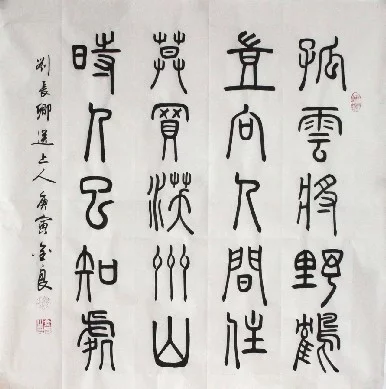 孤雲將野鶴
豈向人間住
莫買沃州山
時人已知處
刘長卿送上人庚寅金良